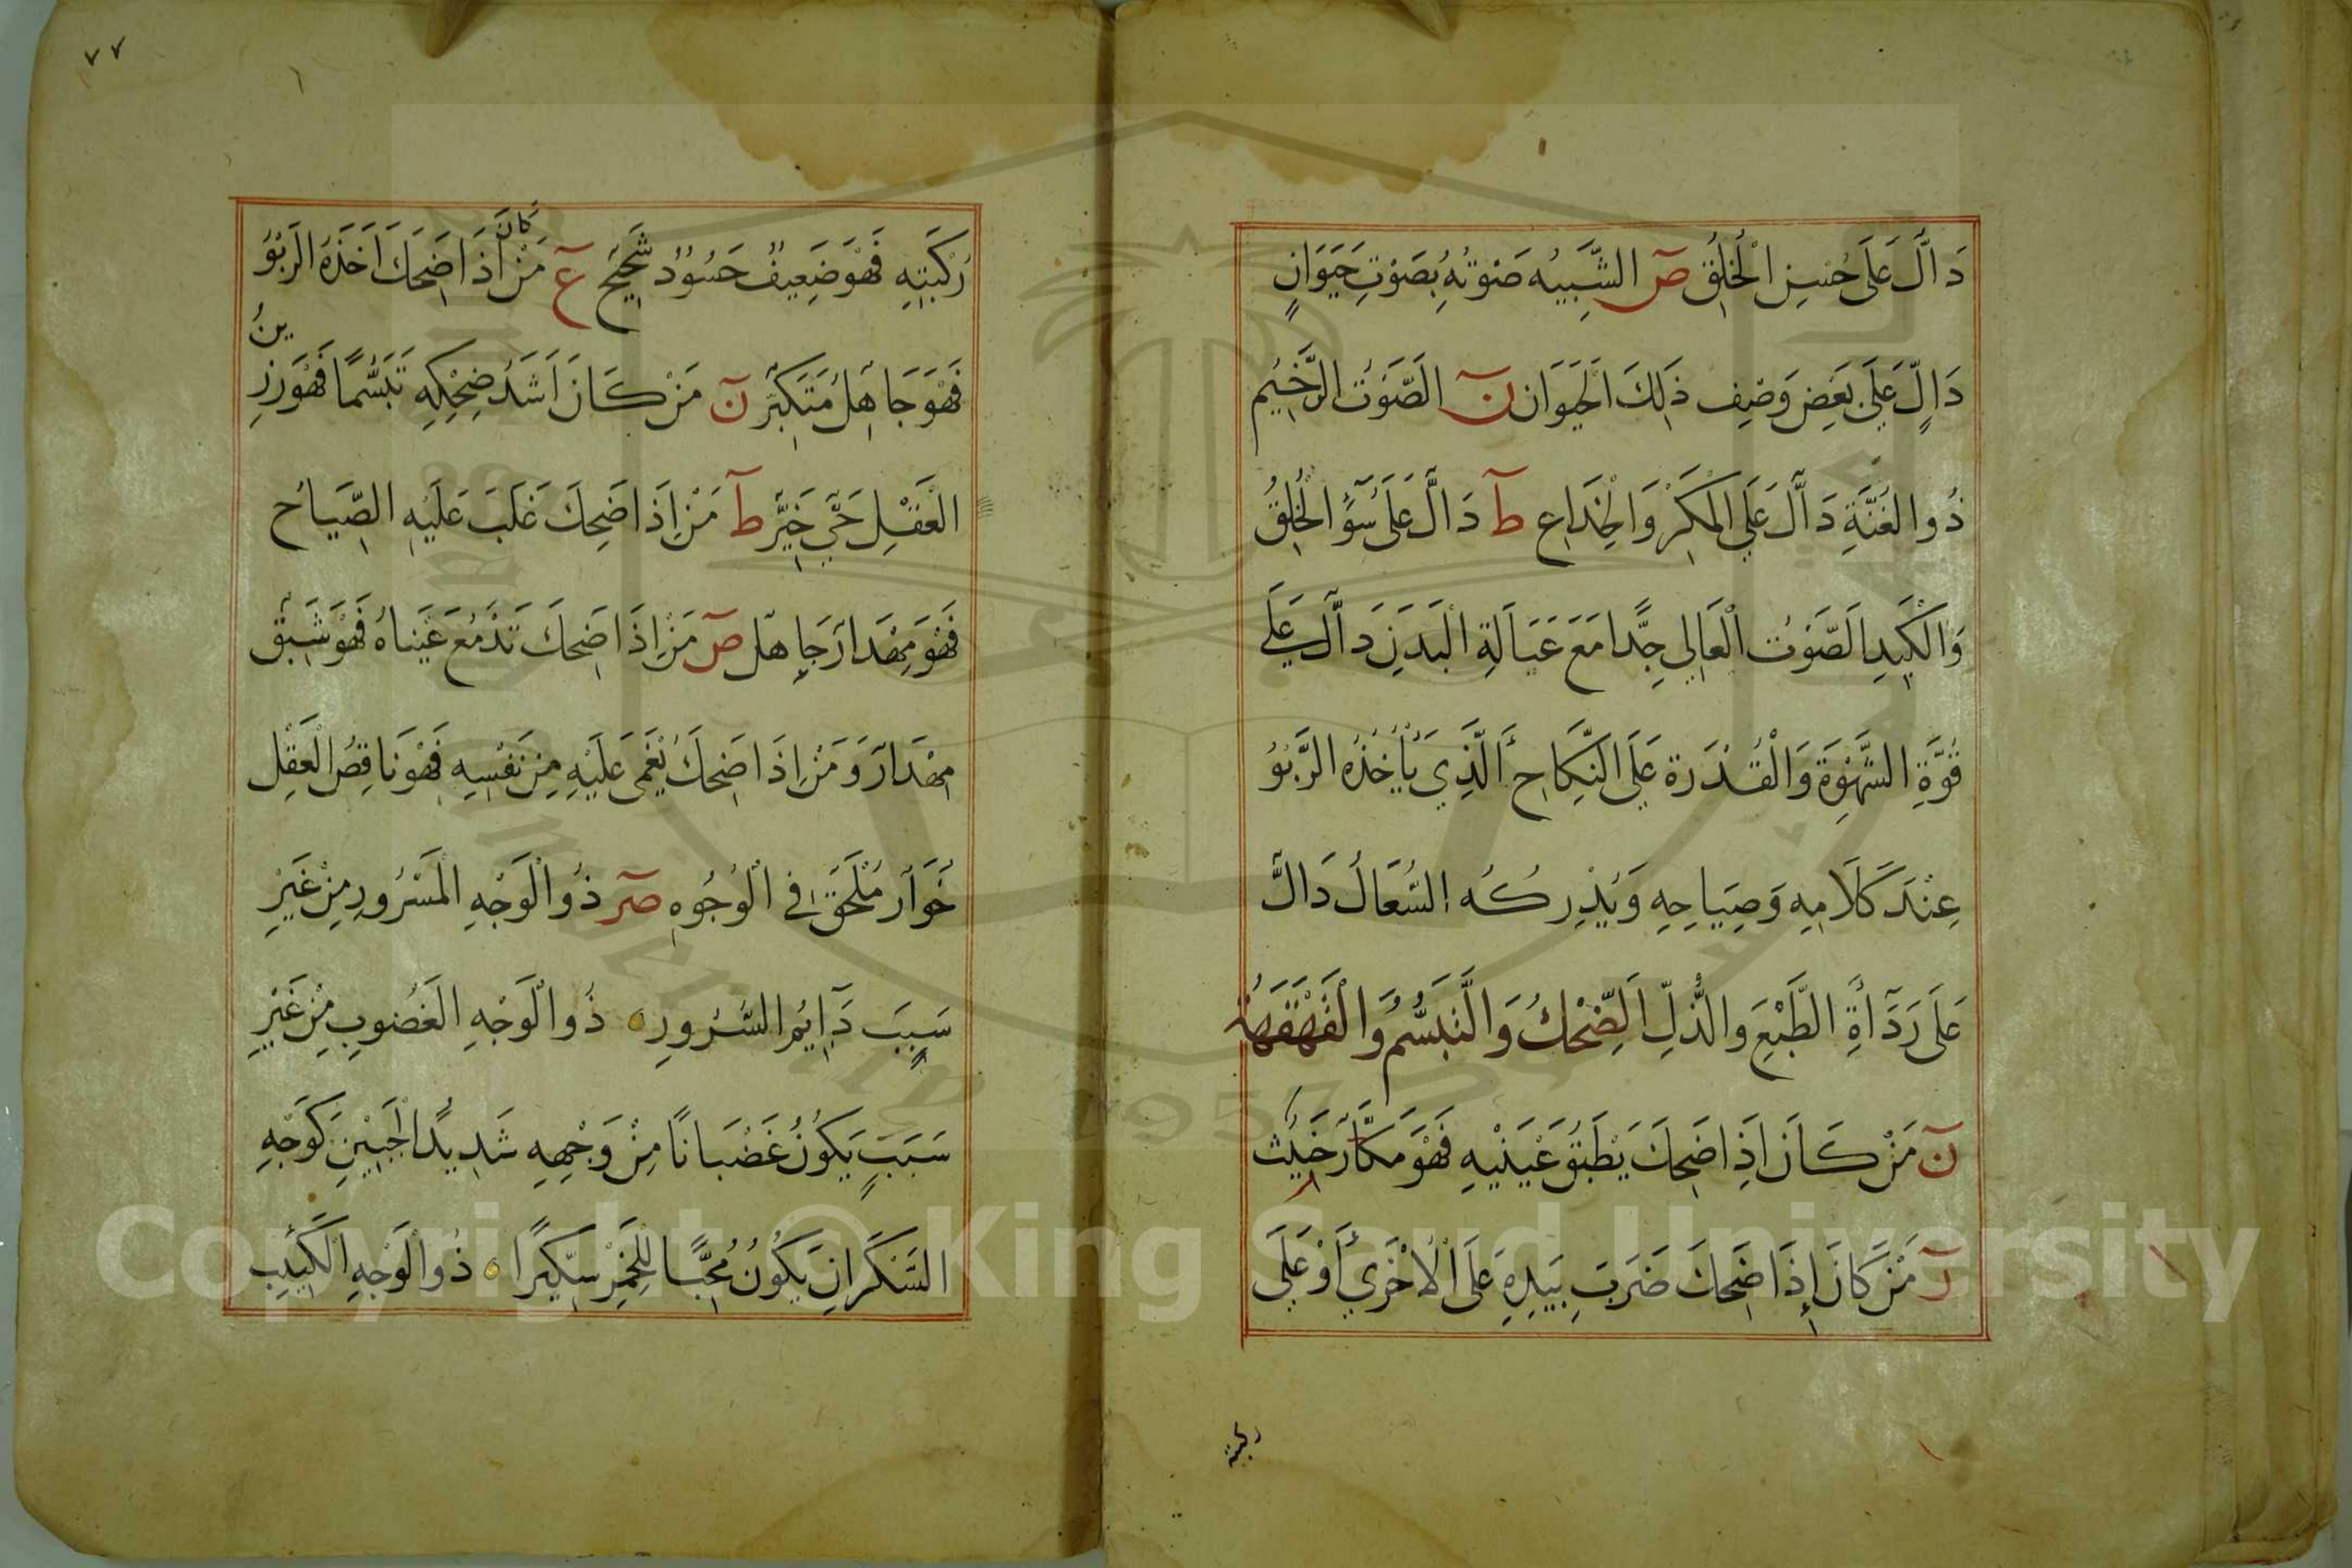 دَالَّ عَلَى حُسْنِ الْخُلُقِ صٓ الشَّبِيْه صَوْتُهُ بِصَوْتِ حَيَوَانٍ
دَالٍّ عَلَى بَعْضِ وَصْفِ ذَلِكَ الْحَيَوَان نٓ الصَّوْتُ الرَّخِيْم
ذُو الغُنَّةِ دَالَّ عَلَى الْمَكْرِ وَالْخِدَاعِ طٓ دَالَّ عَلَى سُوْٓءِ الْخُلُقِ
وَالْكَيْدِ الصَّوْتُ الْعَالِي جِدًّا مَعَ عَبَالَةِ الْبَدَنِ دَالَّ عَلَى
قُوَّةِ الشَّهْوَةِ وَالْقُدْرَةِ عَلَى النِّكَاحِ الَّذِي يَأْخُذُهُ الرَّبْوُ
عِنْدَ كَلَامِهِ وَصِيَاحِهِ وَيُدْرِكُه السُّعَالُ دَالَّ
عَلَى رَدَآأَةِ الطَّبْعِ والذُّلِّ الضِّحْكُ وَالتَّبَسُّمُ وَالْقَهْقَهَةُ
نٓ مَنْ كَانَ اِذَا ضَحِكَ يَطْبِقُ عَيْنَيْهِ فَهْوَ مَكَّارٌ خَبِيْث
رٓ مَنْ كَانَ إِذَا ضَحِكَ ضَرَبَ بِيَدِهِ عَلَى الْأُخْرَى أَوْ عَلَى
ركبته
٧٧
رُكْبَتِهِ فَهْوَ ضَعِيفٌ حَسُوْدٌ شَحِيْحٌ عٓ مَنْ كَانَ اِذَا ضَحِكَ اَخَذَهُ الرَبْوُ
فَهْوَ جَاهِلٌ مُتَكَبِّرٌ نٓ مَنْ كَانَ اَشَدُ ضِحْكِهِ تَبَسُّمًا فَهْوَ رَزِينُ
الْعَقْلِ حَيِي خَيِّرٌ طٓ مَنْ اِذَا ضَحِكَ غَلَبَ عَلَيْهِ الصِّيَاح
فَهْوَ مِهْدَارٌ جَاهِلٌ صٓ مَنْ اِذَا ضَحِكَ تَدْمَعُ عَيْنَاهُ فَهْوَ شَبِقٌ
مِهْدَارٌ وَمَنْ اِذَا ضَحِكَ يُغْمَى عَلَيْهِ مِنْ نَفْسِهِ فَهْوَ نَاقِصُ الْعَقْلِ
خَوَّارٌ مُلْحَقٌ فِي الْوُجُوهِ صٓر ذُو الْوَجْهِ الْمَسْرُورِ مِنْ غَيْرِ
سَبَبَ دَآيِمُ السُّرُورِ ذُو الْوَجْهِ الغَضُوبِ مِنْ غَيْرِ
سَبَبٍ يَكُونُ غَضْبَانًا مِنْ وَجْهِهِ شَدِيدُ الْجَبِيْنِ كَوَجْهِ
السَّكْرَانِ يَكُونُ مُحِبًّا لِلْخَمْرِ سِكِّيْرًا ذُو الْوَجْهِ الْكَئِيْبِ
Copyright © King Saud University
1957